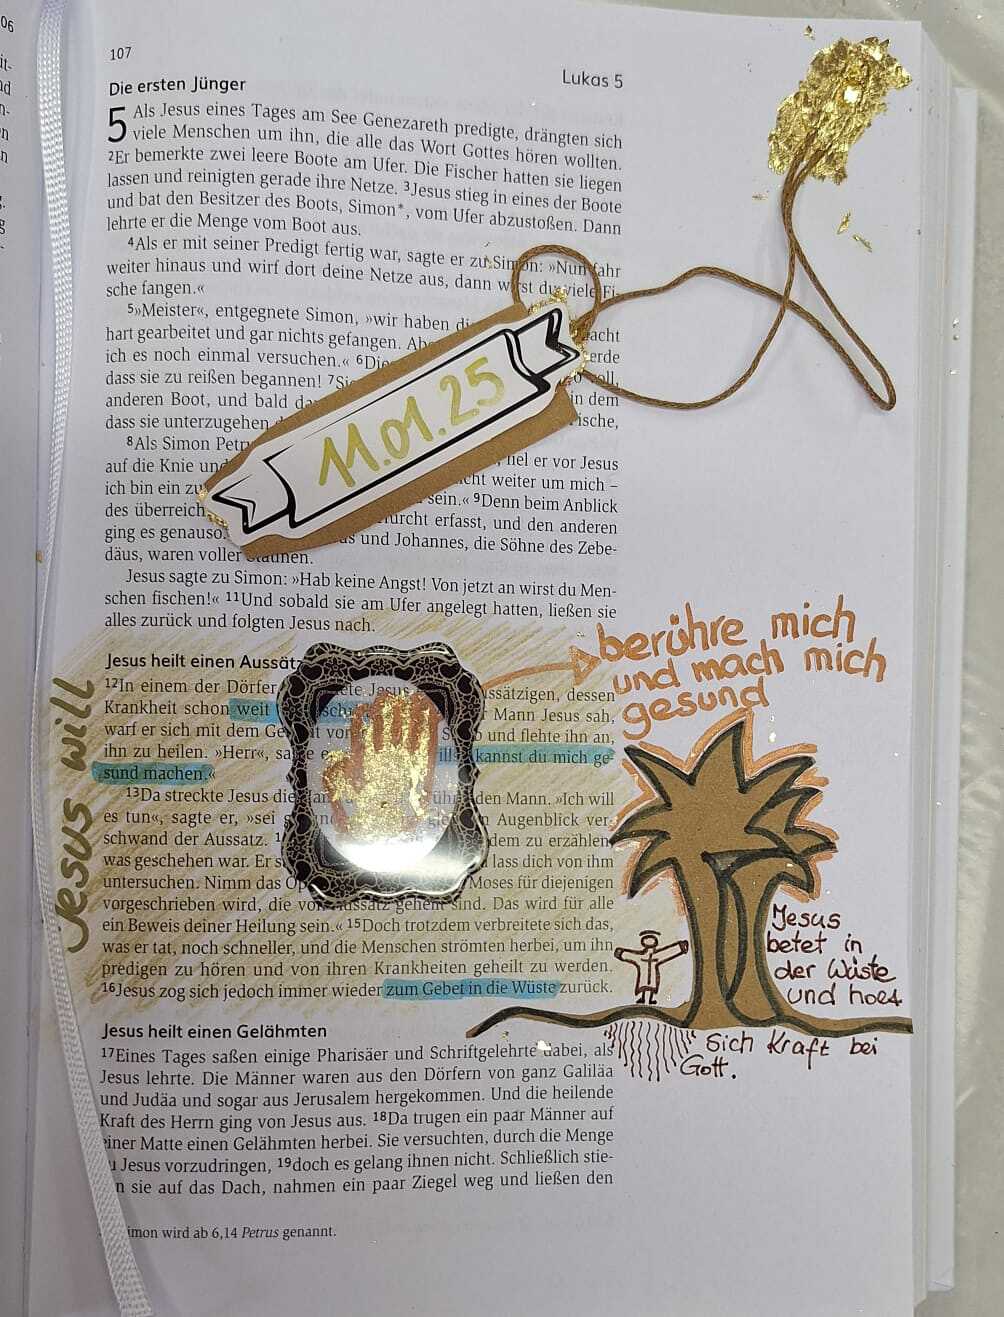 06
107
Lukas 5
Die ersten Jünger
5 Als Jesus eines Tages am See Genezareth predigte, drängten sich
viele Menschen um ihn, die alle das Wort Gottes hören wollten.
²Er bemerkte zwei leere Boote am Ufer. Die Fischer hatten sie liegen
lassen und reinigten gerade ihre Netze. ³Jesus stieg in eines der Boote
und bat den Besitzer des Boots, Simon*, vom Ufer abzustoßen. Dann
lehrte er die Menge vom Boot aus.
⁴Als er mit seiner Predigt fertig war, sagte er zu Simon: »Nun fahr
weiter hinaus und wirf dort deine Netze aus, dann wirst du viele Fi-
sche fangen.«
⁵»Meister«, entgegnete Simon, »wir haben die
hart gearbeitet und gar nichts gefangen.
ich es noch einmal versuchen.« ⁶
dass sie zu reißen begannen! ⁷ voll,
anderen Boot, und bald in dem
dass sie unterzugehen
⁸Als Simon
auf die Knie und fiel er vor Jesus
ich bin ein weiter um mich –
des sein.« ⁹Denn beim Anblick
ging es erfasst, und den anderen
und Johannes, die Söhne des Zebe-
däus, waren voller Staunen.
11.01.25
Jesus sagte zu Simon: »Hab keine Angst! Von jetzt an wirst du Men-
schen fischen!« ¹¹Und sobald sie am Ufer angelegt hatten, ließen sie
alles zurück und folgten Jesus nach.
Jesus heilt einen
¹²In einem der Dörfer Jesus dessen
Krankheit schon weit Mann Jesus sah,
warf er sich mit dem und flehte ihn an,
ihn zu heilen. »Herr«, kannst du mich ge-
sund machen.«
¹³Da streckte Jesus die den Mann. »Ich will
es tun«, sagte er, »sei Augenblick ver-
schwand der Aussatz. dem zu erzählen,
was geschehen war. Er lass dich von ihm
untersuchen. Nimm das Moses für diejenigen
vorgeschrieben wird, die von Aussatz geheilt sind. Das wird für alle
ein Beweis deiner Heilung sein.« ¹⁵Doch trotzdem verbreitete sich das,
was er tat, noch schneller, und die Menschen strömten herbei, um ihn
predigen zu hören und von ihren Krankheiten geheilt zu werden.
¹⁶Jesus zog sich jedoch immer wieder zum Gebet in die Wüste zurück.
Jesus will
berühre mich
und mach mich
gesund
Jesus
betet in
der Wüste
und hoes
sich Kraft bei
Gott.
Jesus heilt einen Gelähmten
¹⁷Eines Tages saßen einige Pharisäer und Schriftgelehrte dabei, als
Jesus lehrte. Die Männer waren aus den Dörfern von ganz Galiläa
und Judäa und sogar aus Jerusalem hergekommen. Und die heilende
Kraft des Herrn ging von Jesus aus. ¹⁸Da trugen ein paar Männer auf
einer Matte einen Gelähmten herbei. Sie versuchten, durch die Menge
zu Jesus vorzudringen, ¹⁹doch es gelang ihnen nicht. Schließlich stie-
gen sie auf das Dach, nahmen ein paar Ziegel weg und ließen den
Simon wird ab 6,14 Petrus genannt.